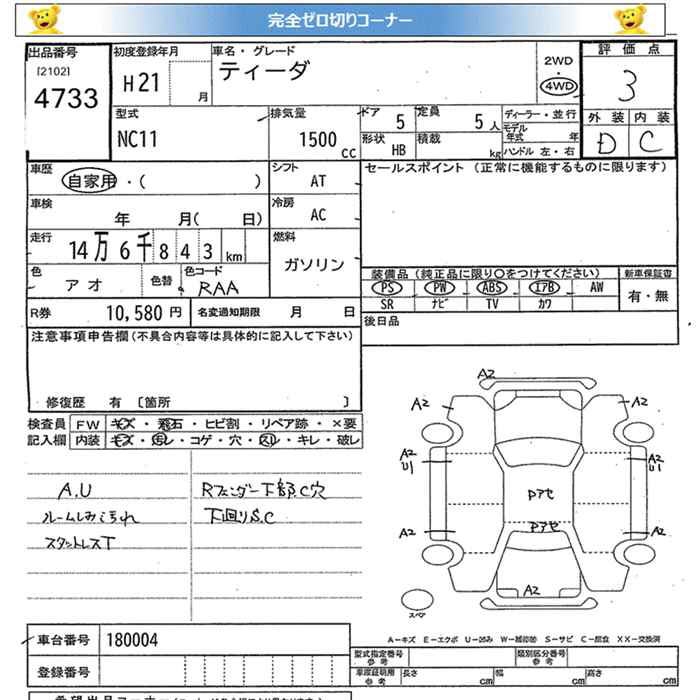 完全ゼロ切りコーナー
出品番号
[2102]
4733
初度登録年月
H21
月
車名・グレード
ティーダ
2WD
・
4WD
評価点
3
外装 内装
D C
型式
NC11
排気量
1500
CC
ドア
5
定員
5人
形状
HB
積載
kg
ディーラー・並行
モデル年式 年
ハンドル 左・右
車歴
自家用・( )
シフト
AT
セールスポイント (正常に機能するものに限ります)
車検
年 月( 日)
冷房
AC
走行
14万6千843km
燃料
ガソリン
色
アオ
色替
色コード
RAA
装備品(純正品に限り○をつけてください)
新車保証書
PS PW ABS エアB AW
有・無
SR ナビ TV カワ
R券
10,580 円
名変通知期限 月 日
後日品
注意事項申告欄(不具合内容等は具体的に記入して下さい)
修復歴 有 [箇所 ]
検査員
記入欄
FW キズ・飛石・ヒビ割・リペア跡・×要
内装 キズ・汚レ・コゲ・穴・スレ・キレ・破レ
A.U
ルームしみ汚れ
スタットレスT
Rフェンダー下部.C穴
下廻りS.C
A2
A2
A2
A2
U1
A2
U1
Pアセ
Pアセ
A2
A2
A2
スペア
A-キズ E-エクボ U-凹み W-補修跡 S-サビ C-腐食 XX-交換済
車台番号
180004
登録番号
型式指定番号
参考
類別区分番号
参考
車庫証明用
参考
長さ cm
幅 cm
高さ cm